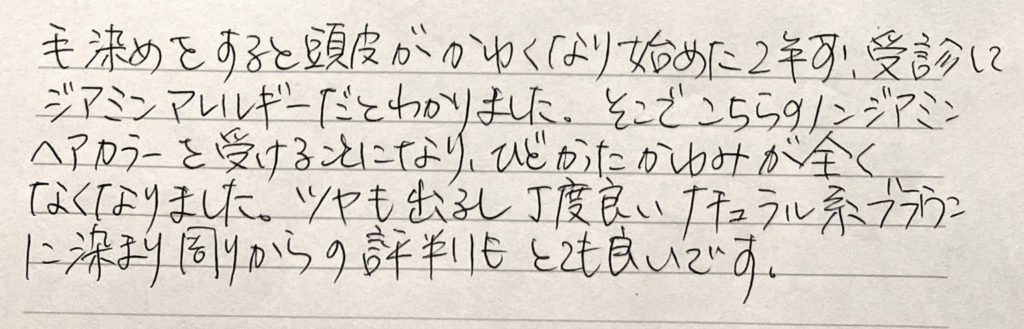 毛染めをすると頭皮がかゆくなり始めた2年前、受診して
ジアミンアレルギーだとわかりました。そこでこちらのノンジアミン
ヘアカラーを受けることになり、ひどかったかゆみが全く
なくなりました。ツヤも出るし丁度良いナチュラル系ブラウン
に染まり周りからの評判もとても良いです。